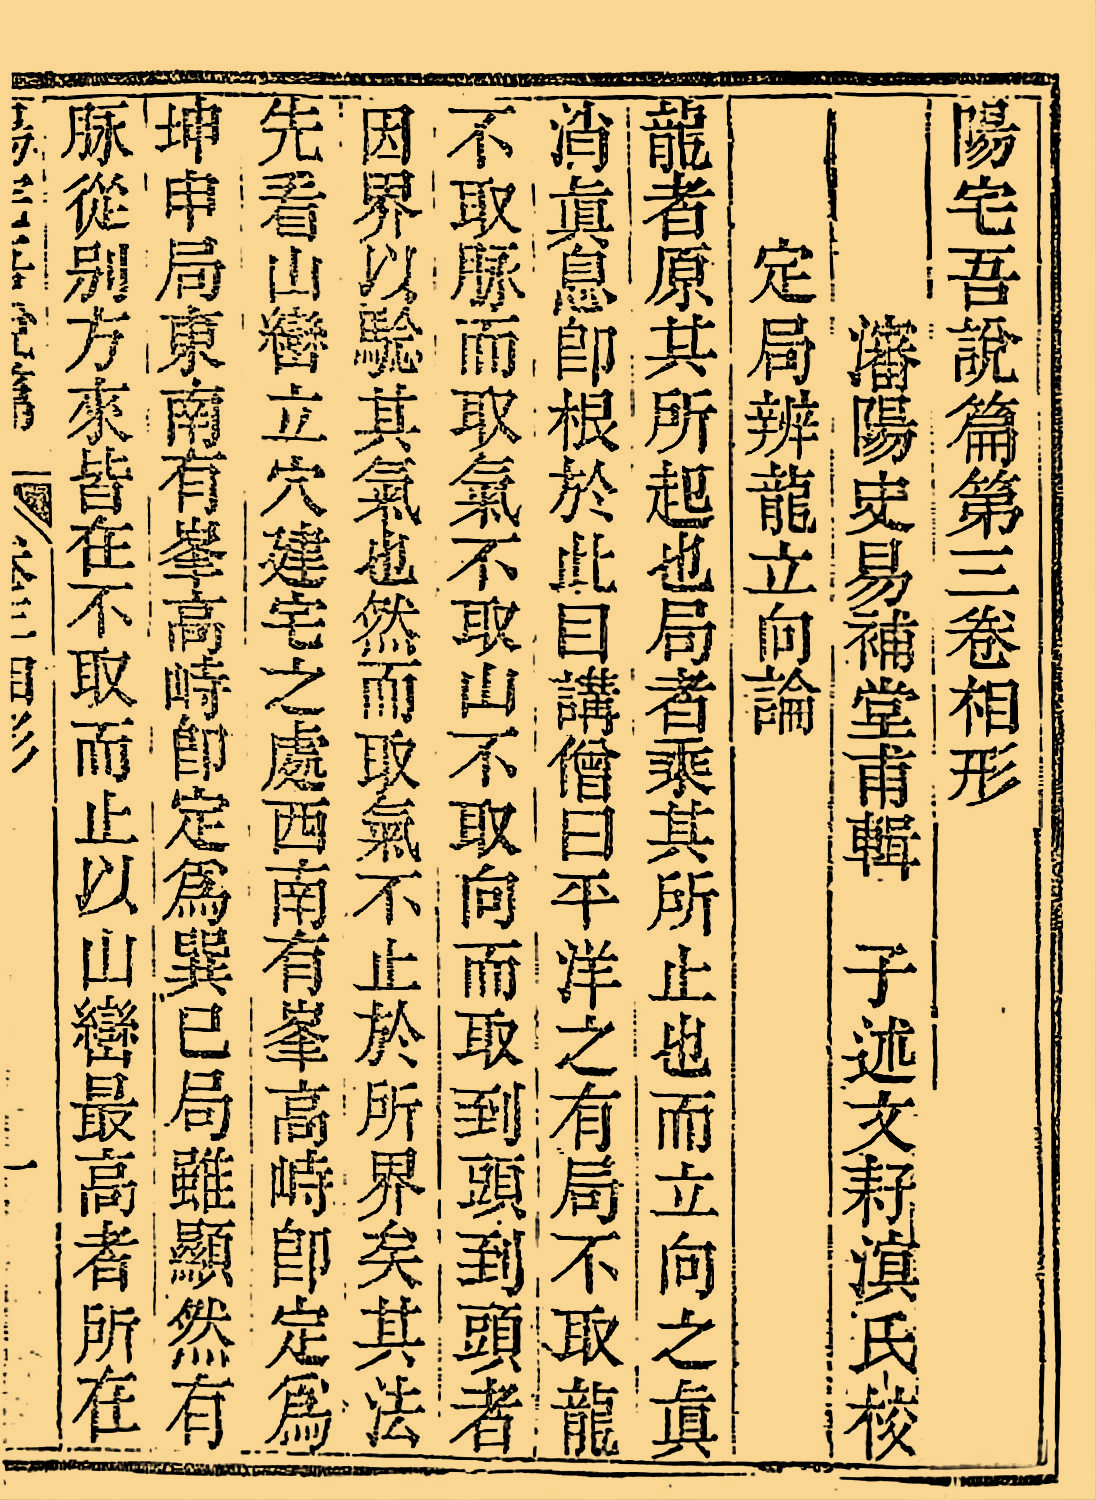 陽宅吾說篇第三卷相形
瀋陽史易補堂甫輯　子述文耔滇氏梭
定局辨龍立向論
龍者原其所起也局者乘其所止也而立向之眞
消眞息卽根於此目講僧曰平洋之有局不取龍
不取脈而取氣不取山不取向而取到頭到頭者
因界以驗其氣也然而取氣不止於所界矣其法
先看山巒立穴建宅之處西南有峯高峙卽定爲
坤申局東南有峯高峙卽定爲巽巳局雖顯然有
脉從别方來皆在不取而止以山巒最高者所在